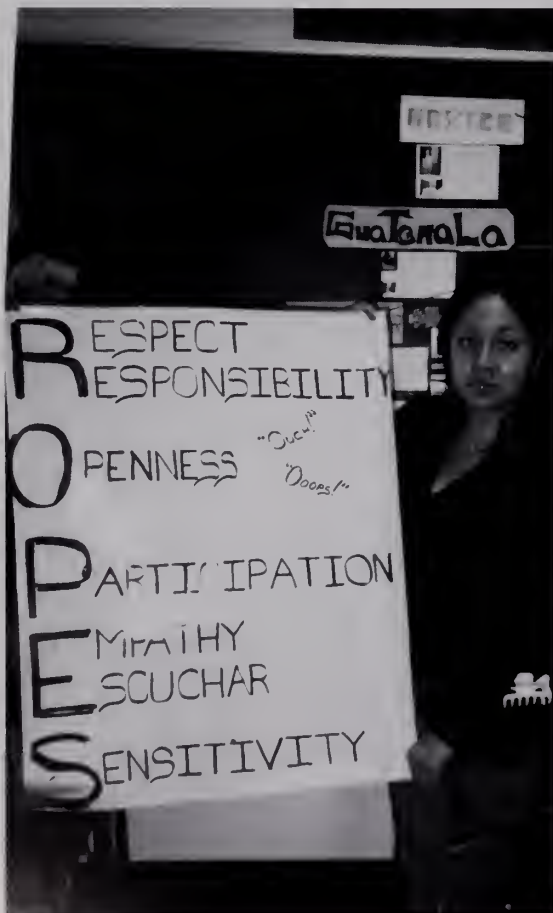 GuaTemaLa
RESPECT
RESPONSIBILITY
OPENNESS "Ouch!"
"Ooops!"
PARTICIPATION
EMPATHY
ESCUCHAR
SENSITIVITY